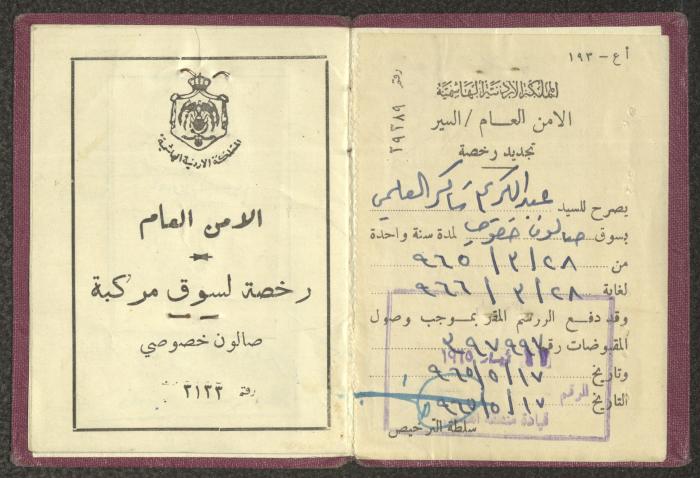 المملكة الاردنية الهاشمية
الامن العام
رخصة لسوق مركبة
صالون خصوصي
رقم ٣١٣٣
أع - ١٩٣
رقم ٣٩٣٨٩
المملكة الاردنية الهاشمية
الامن العام / السير
تجديد رخصة
يصرح للسيد عبد الكريم شاكر العلمي
بسوق صالون خصوصي لمدة سنة واحدة
من ٢٨ / ٣ / ٩٦٥
لغاية ٢٨ / ٣ / ٩٦٦
وقد دفع الرسم المقرر بموجب وصول
المقبوضات رقم ٣٩٧٩٩٧
وتاريخ ١٧ / ٥ / ٩٦٥
التاريخ ١٧ / ٥ / ٩٦٥
سلطة الترخيص
الرقم
قيادة منطقة